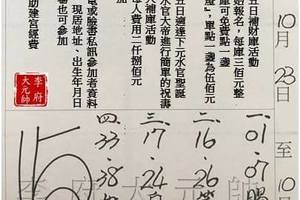 五日補財庫活動
始報名，每庫三佰元整
庫可免費點一盞
」單點一盞為伍佰元
五日適逢下元水官聖誕
水官大帝進行簡單的祝壽
補庫活動
每人費用二仟捌佰元
電或臉書私訊參加者資料
、現居地址、出生年月日
場也可參加
助建宮經費
李府大元帥
10月23日至10
一.01.07賜
二.16.26
三.17.24
四.33.38
15
李府大元帥